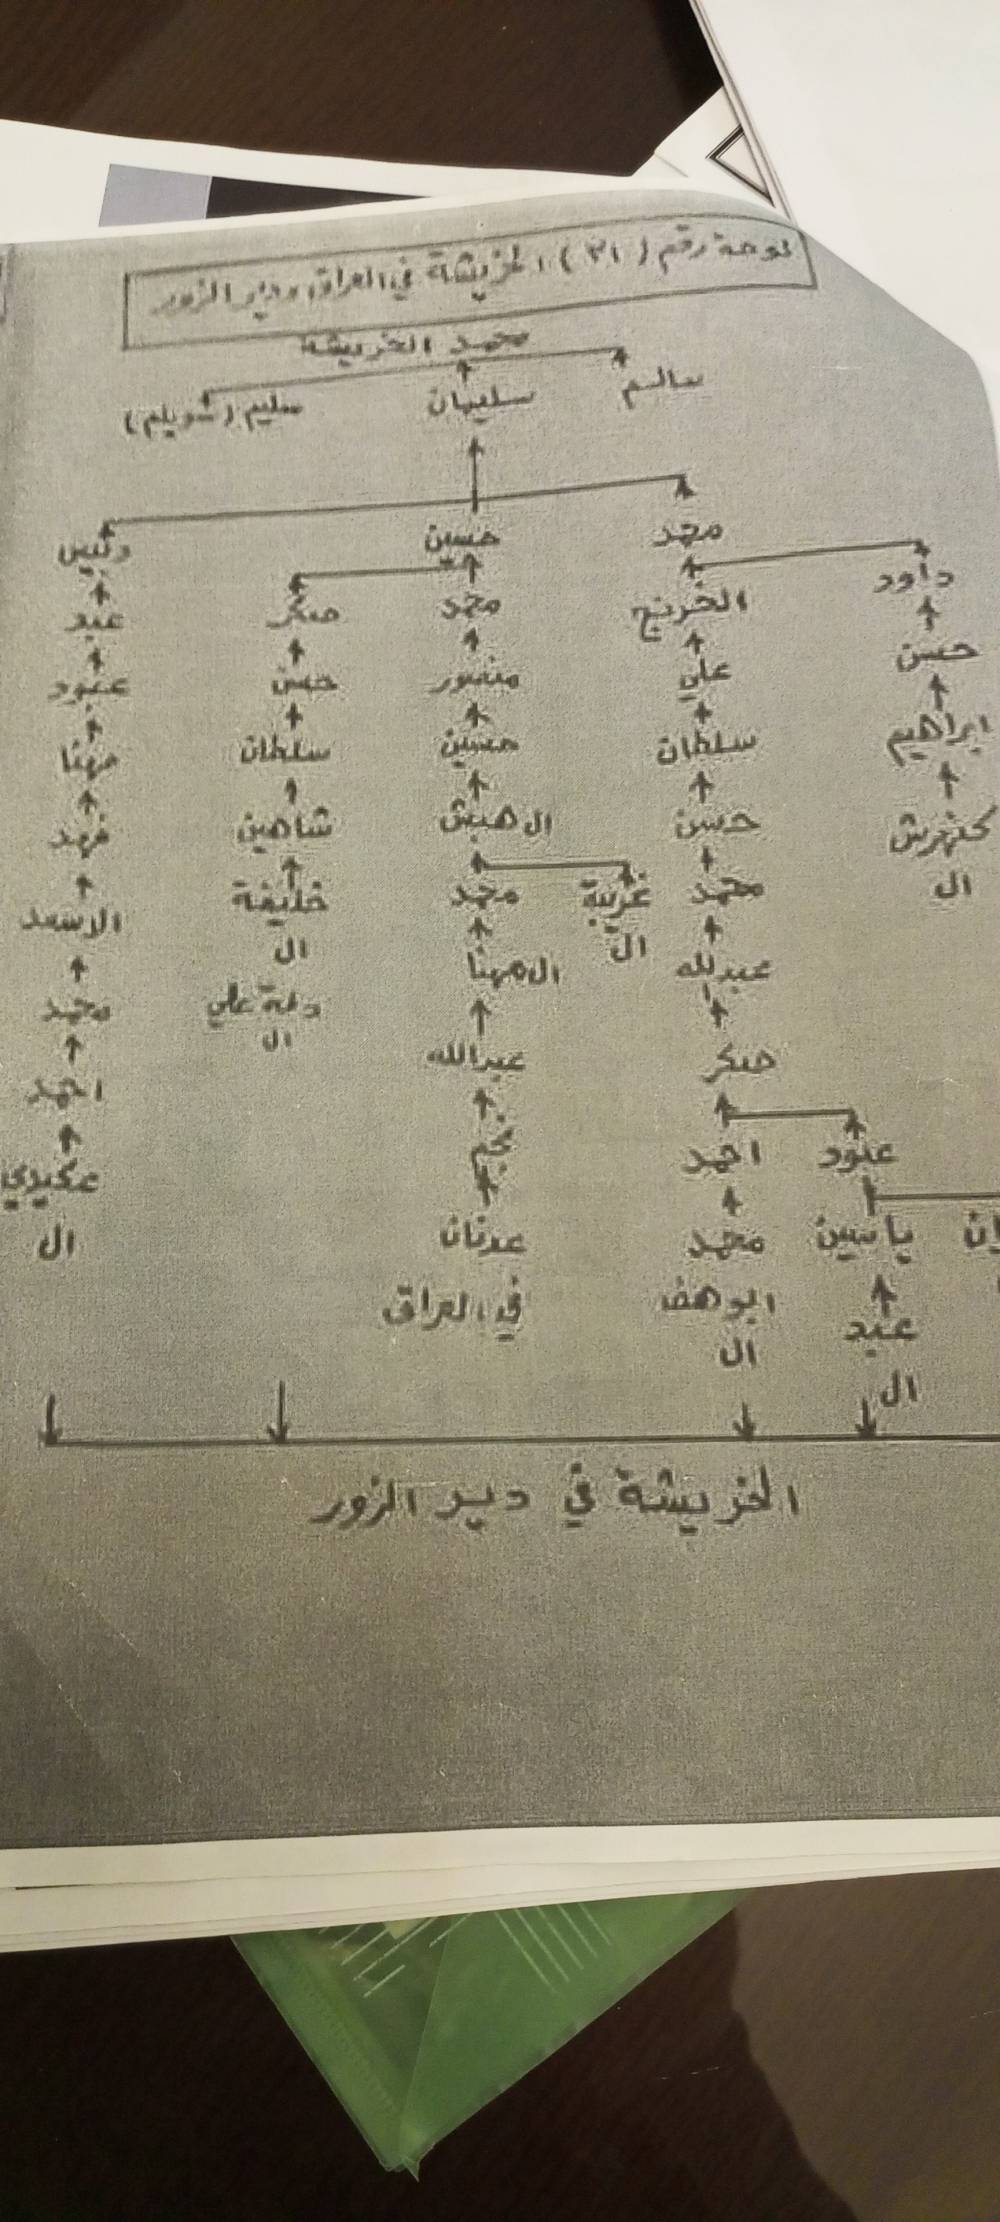 لوحة رقم (٣١) الخريشة في العراق ودير الزور
محمد الخريشة
سالم سليمان سليم (شويلم)
محمد حسين دليس
داود الخرنج محمد صكر عبد
حسن علي منصور حسن عبود
ابراهيم سلطان حسين سلطان مهنا
كنهرش حسن ال هبش شاهين فهد
ال محمد غريبة محمد خليفة الاسعد
ال ال
عبدالله ال مهنا دلة علي محمد
ال
صكر عبدالله احمد
عبود احمد نجم عكيدي
ياسين محمد عدنان ال
عبد ابوهف في العراق
ال ال
الخريشة في دير الزور